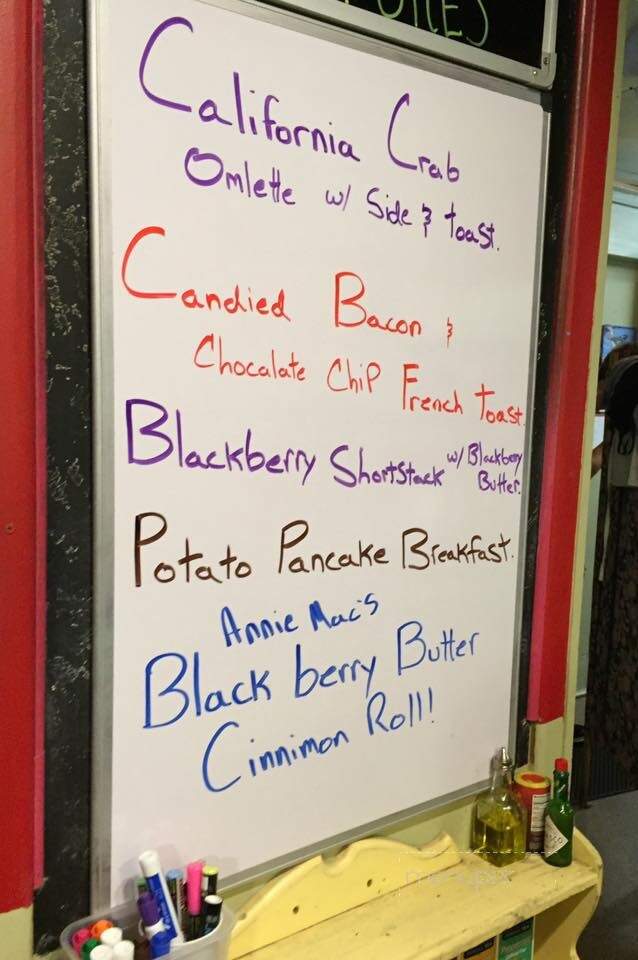 California Crab
Omlette w/ Side & toast.
Candied Bacon &
Chocalate Chip French Toast.
Blackberry Shortstack w/ Blackberry
Butter.
Potato Pancake Breakfast.
Annie Mac's
Black berry Butter
Cinnimon Roll!
menupix